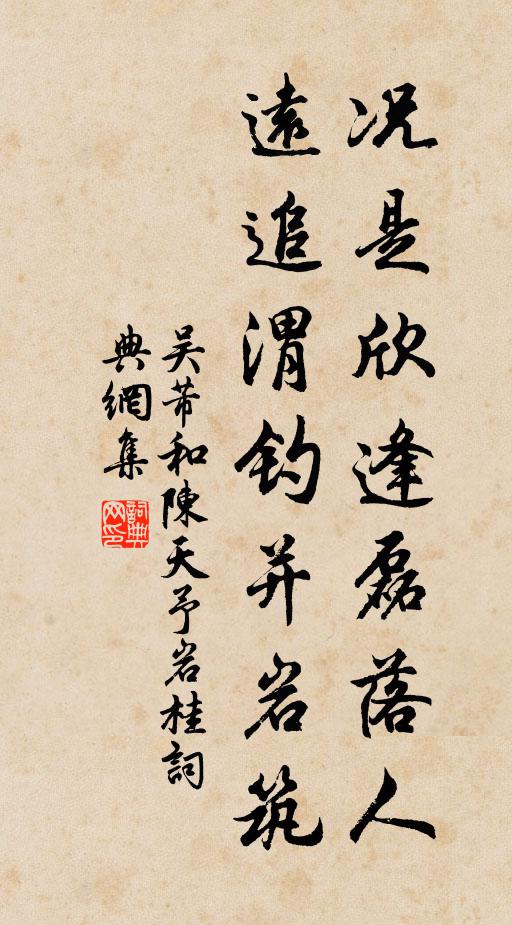 况是欣逢磊落人
遠追渭钓并岩筑
吴芾和陳天予岩桂詞
典網集
詞典网印